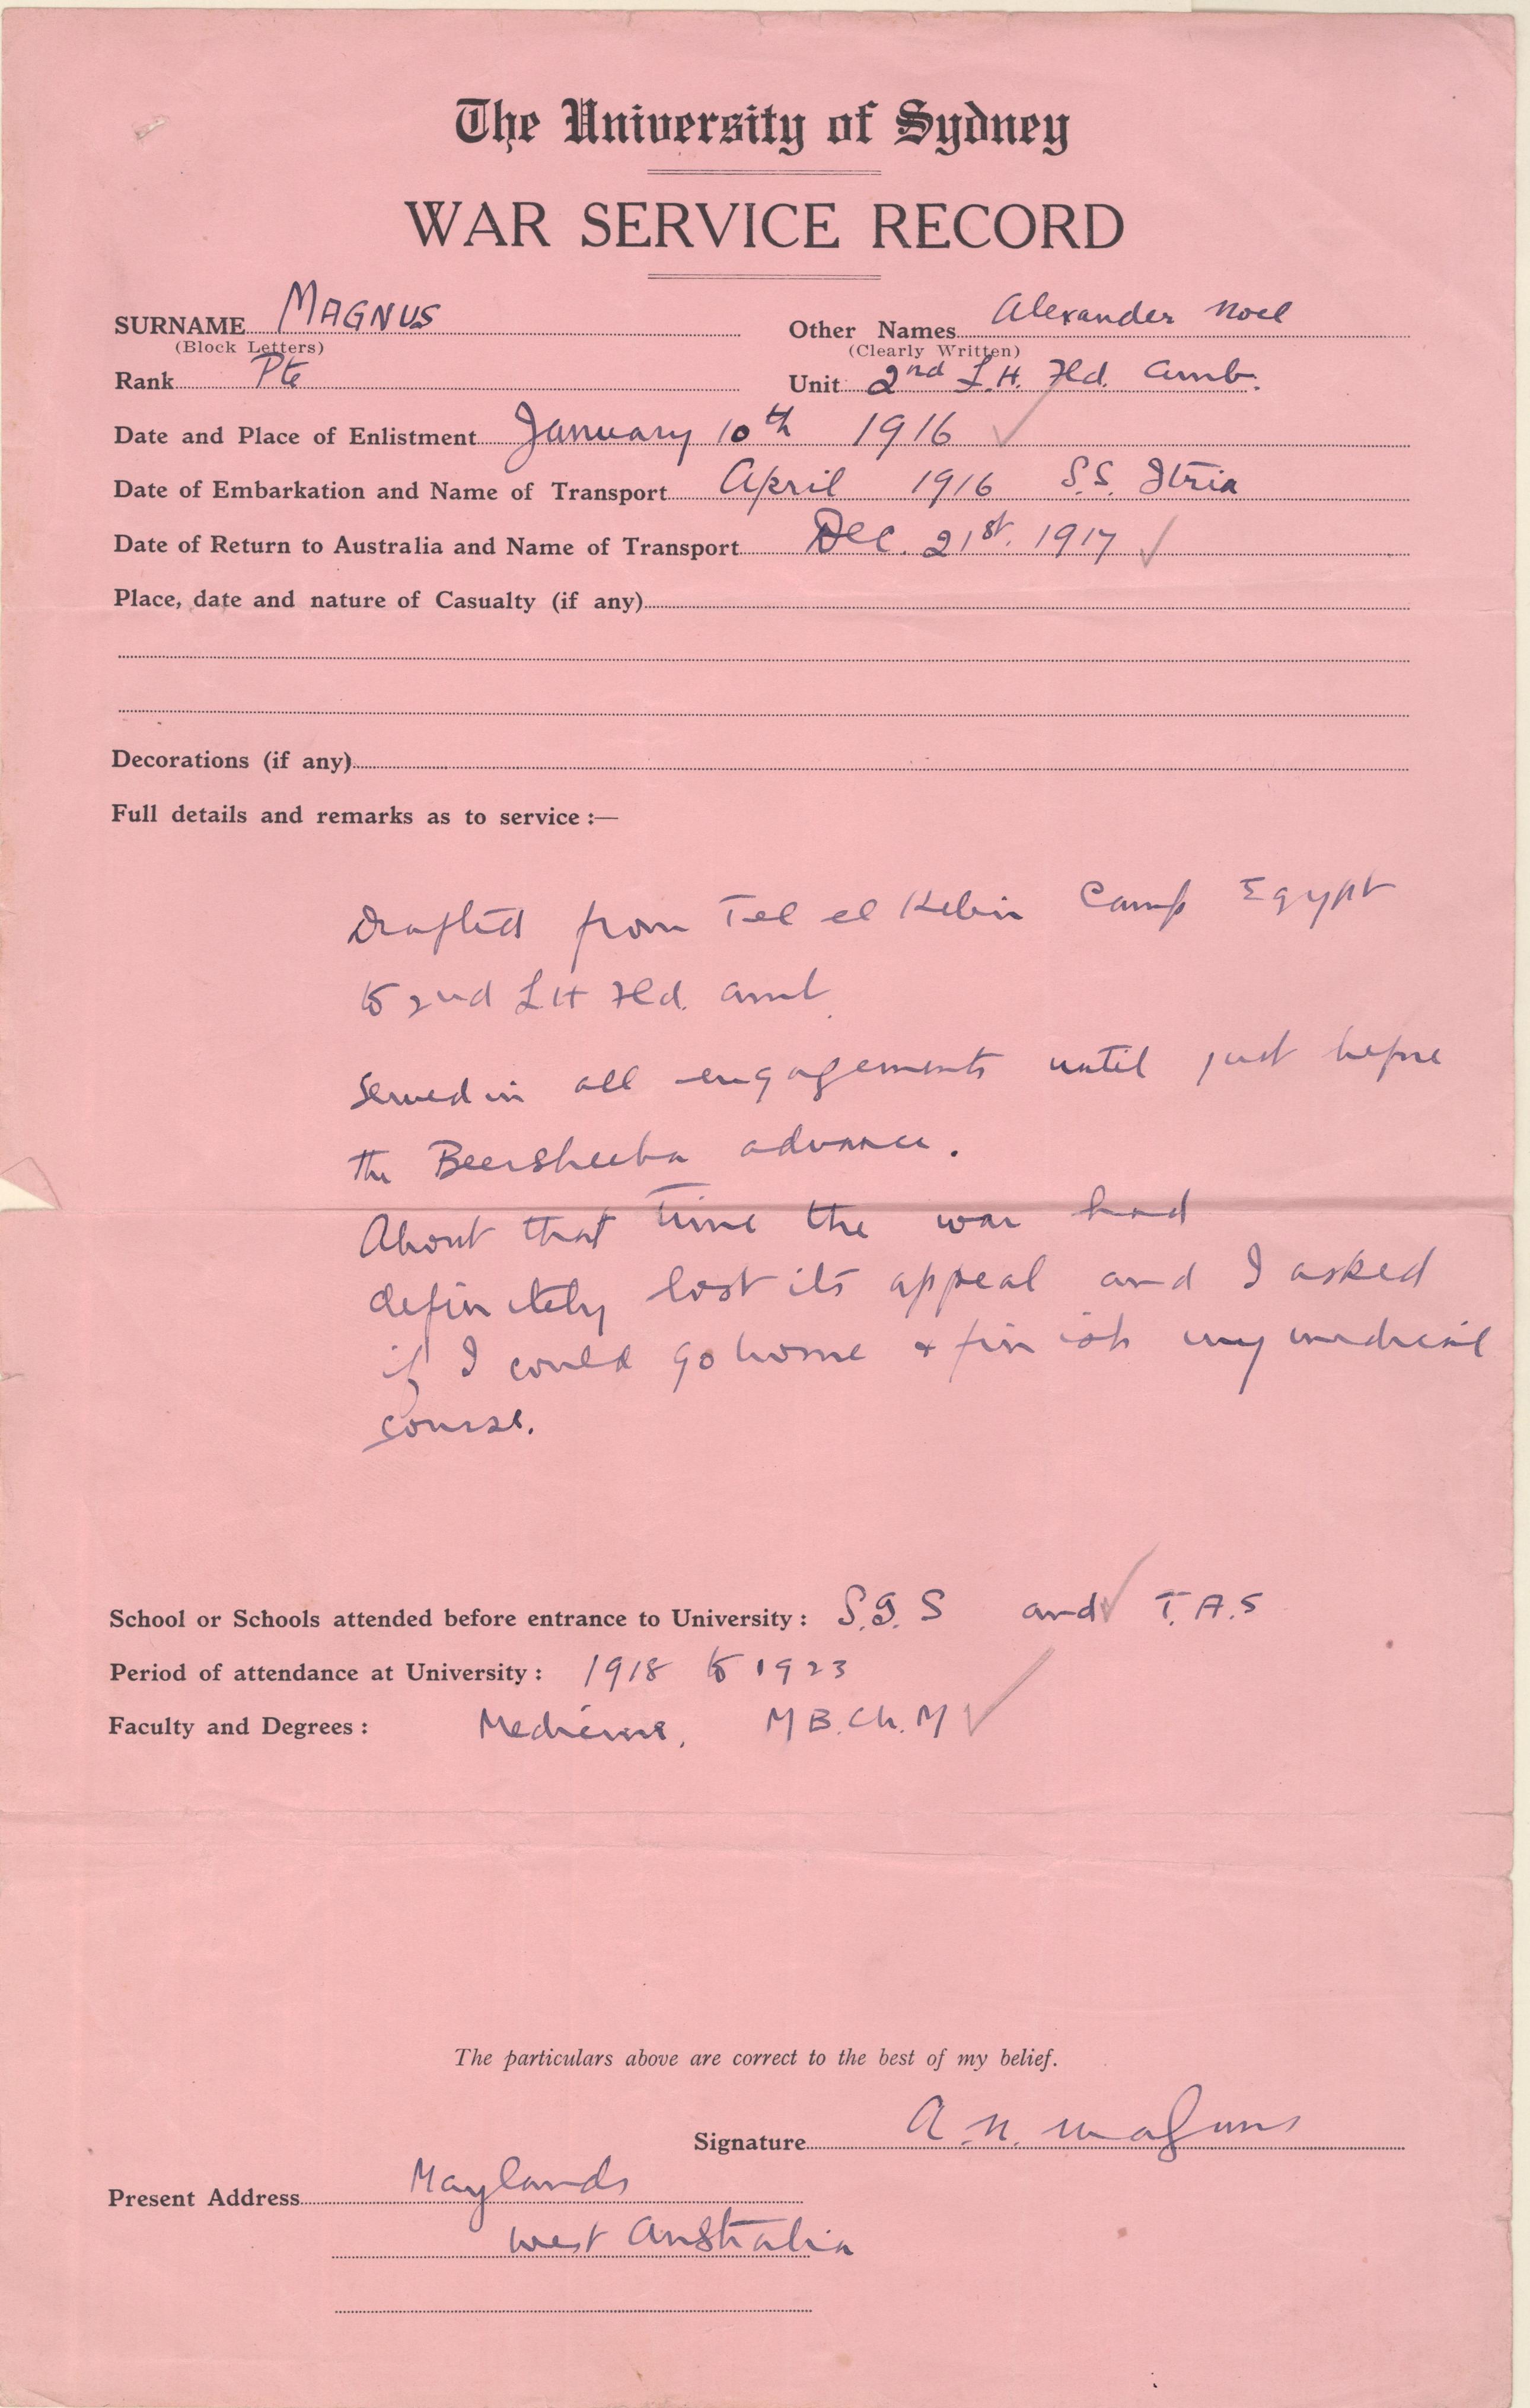 The University of Sydney
WAR SERVICE RECORD
SURNAME MAGNUS Other Names Alexander Noel
(Block Letters) (Clearly Written)
Rank Pte Unit 2nd L.H. Fld. Amb.
Date and Place of Enlistment January 10th 1916 ✓
Date of Embarkation and Name of Transport April 1916 S.S. Itria
Date of Return to Australia and Name of Transport Dec. 21st. 1917 ✓
Place, date and nature of Casualty (if any)
Decorations (if any)
Full details and remarks as to service :—
Drafted from Tel el Kebir Camp Egypt
to 2nd LH Fld. Amb.
Served in all engagements until just before
the Beersheeba advance.
About that time the war had
definitely lost its appeal and I asked
if I could go home & finish my medical
course.
School or Schools attended before entrance to University : S.G.S and ✓ T.A.S
Period of attendance at University : 1918 to 1923
Faculty and Degrees : Medicine, M B. Ch. M ✓
The particulars above are correct to the best of my belief.
Signature A. N. Magnus
Present Address Maylands
West Australia